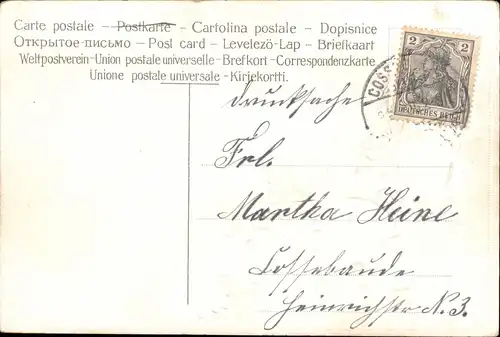 Carte postale - Postkarte - Cartolina postale - Dopisnice
Открытое-письмо - Post card - Levelezö-Lap - Briefkaart
Weltpostverein-Union postale universelle-Brefkort-Correspondenzkarte
Unione postale universale - Kirjekortti.
2 2
DEUTSCHES REICH
COSS
Drucksache
Frl.
Martha Heine
Cossebaude
Heinrichstr N. 3.